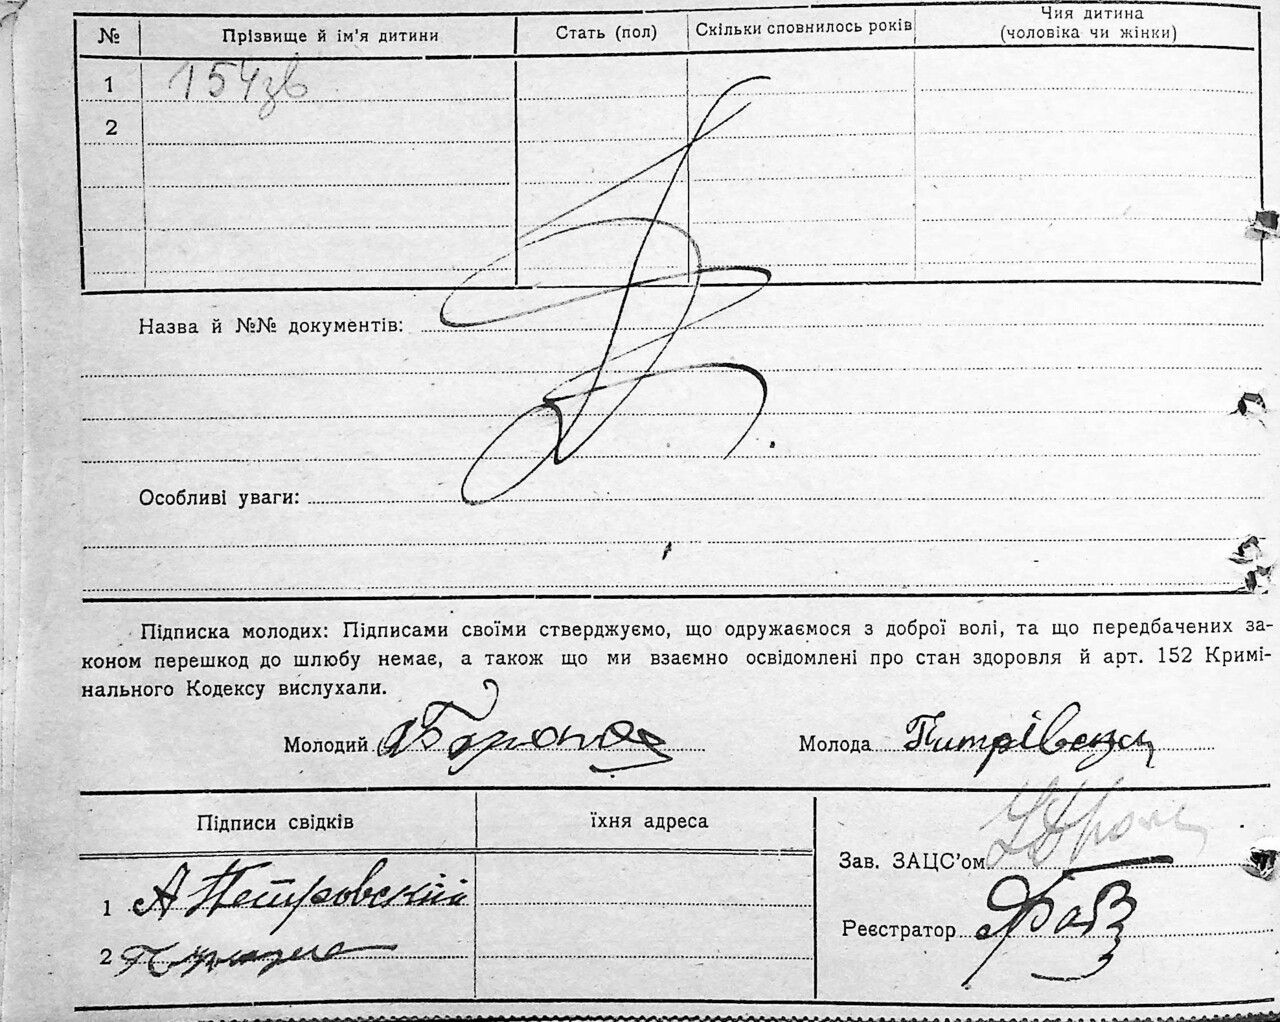 № Прізвище й ім'я дитини Стать (пол) Скільки сповнилось років Чия дитина
(чоловіка чи жінки)
1 154зв
2
Назва й №№ документів:
Особливі уваги:
Підписка молодих: Підписами своїми стверджуємо, що одружаємося з доброї волі, та що передбачених за-
коном перешкод до шлюбу немає, а також що ми взаємно освідомлені про стан здоровля й арт. 152 Кримі-
нального Кодексу вислухали.
Молодий Молода
Підписи свідків їхня адреса
Зав. ЗАЦС'ом
1 А Петровский
Реєстратор
2